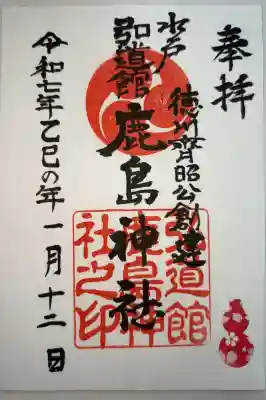 奉拝
徳川斉昭公創建
水戸
弘道館
鹿島神社
弘道館
鹿島神
社之印
令和七年乙巳の年一月十二日